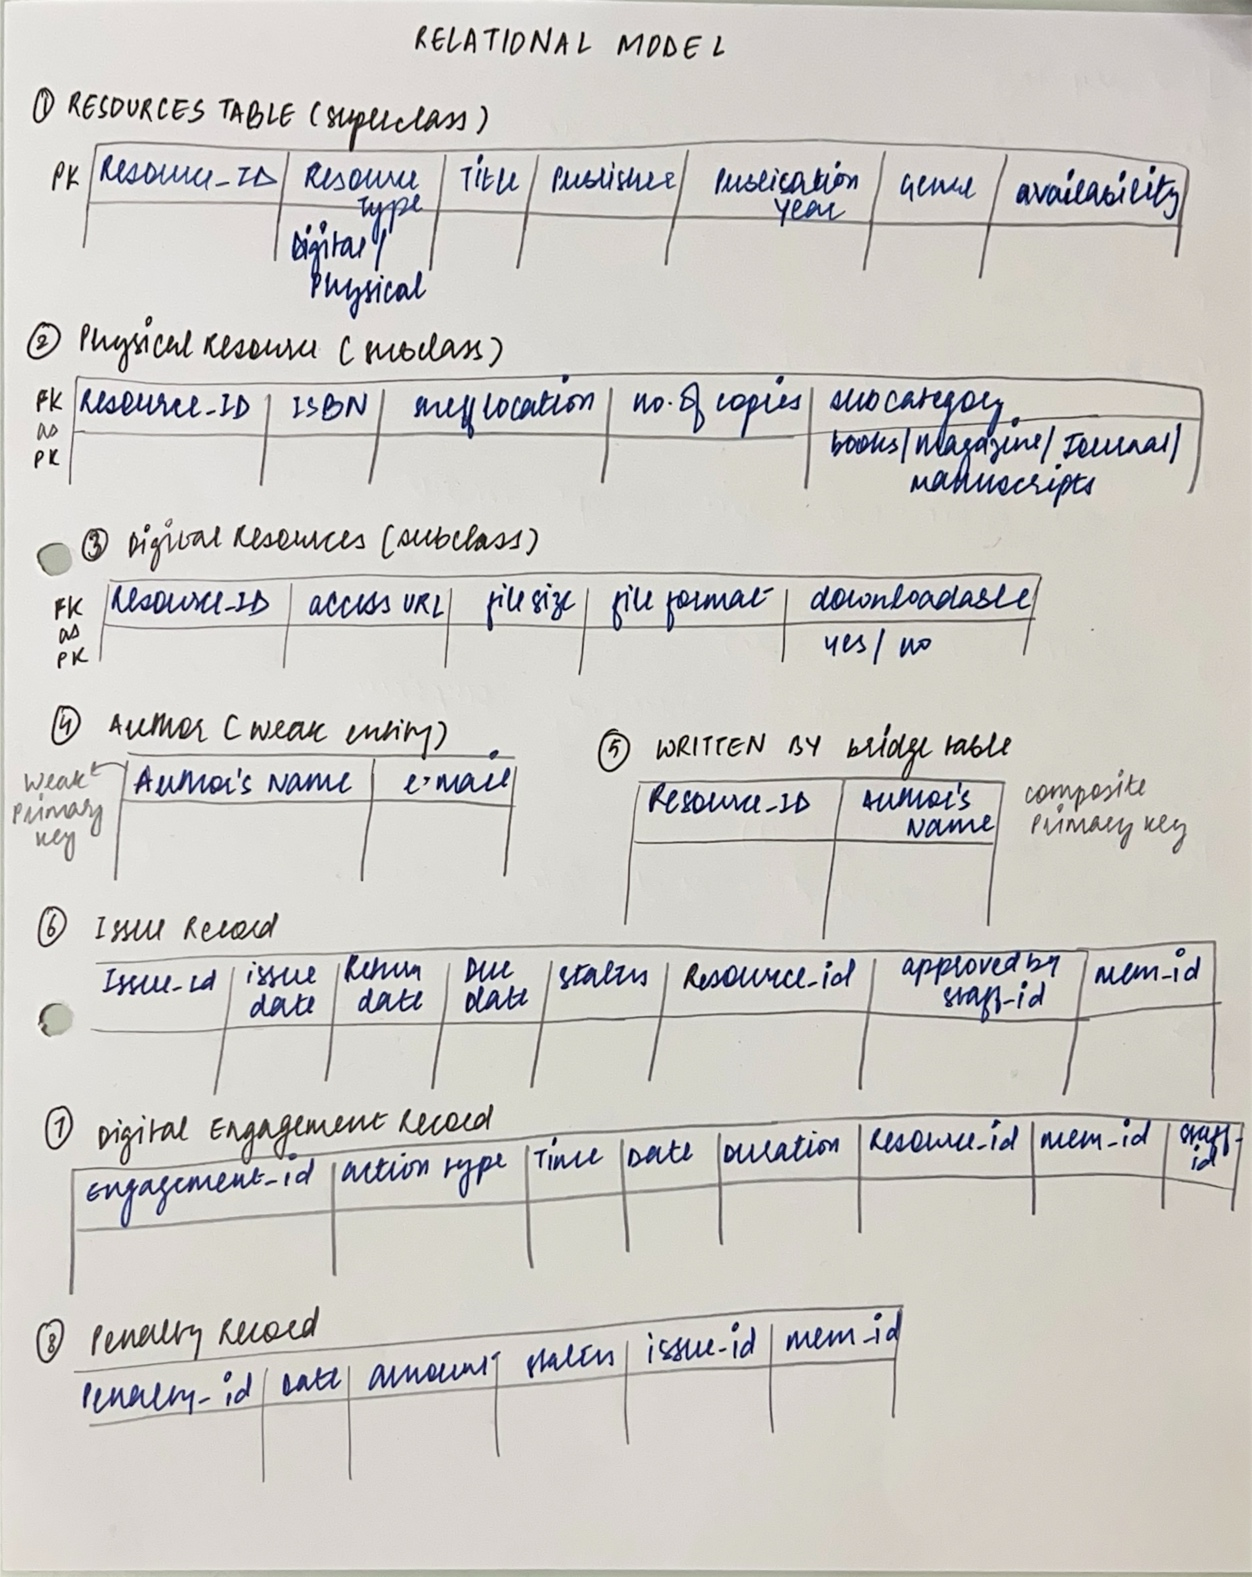 RELATIONAL MODEL
① RESOURCES TABLE (superclass)
PK Resource_ID Resource Type Title Publisher Publication Year Genre availability
Digital / Physical
② Physical Resource (subclass)
FK as PK Resource_ID ISBN shelf location no. of copies subcategory
books/magazine/Journal/
manuscripts
③ Digital Resources (subclass)
FK as PK Resource_ID access URL file size file format downloadable
yes / no
④ Author (weak entity)
Weak Primary key Author's Name e-mail
⑤ WRITTEN BY bridge table
Resource_ID Author's Name composite Primary key
⑥ Issue Record
Issue_id issue date Return date Due date status Resource_id approved by staff_id mem_id
⑦ Digital Engagement Record
Engagement_id action type Time Date Duration Resource_id mem_id staff_id
⑧ Penalty Record
Penalty_id Date amount status issue_id mem_id